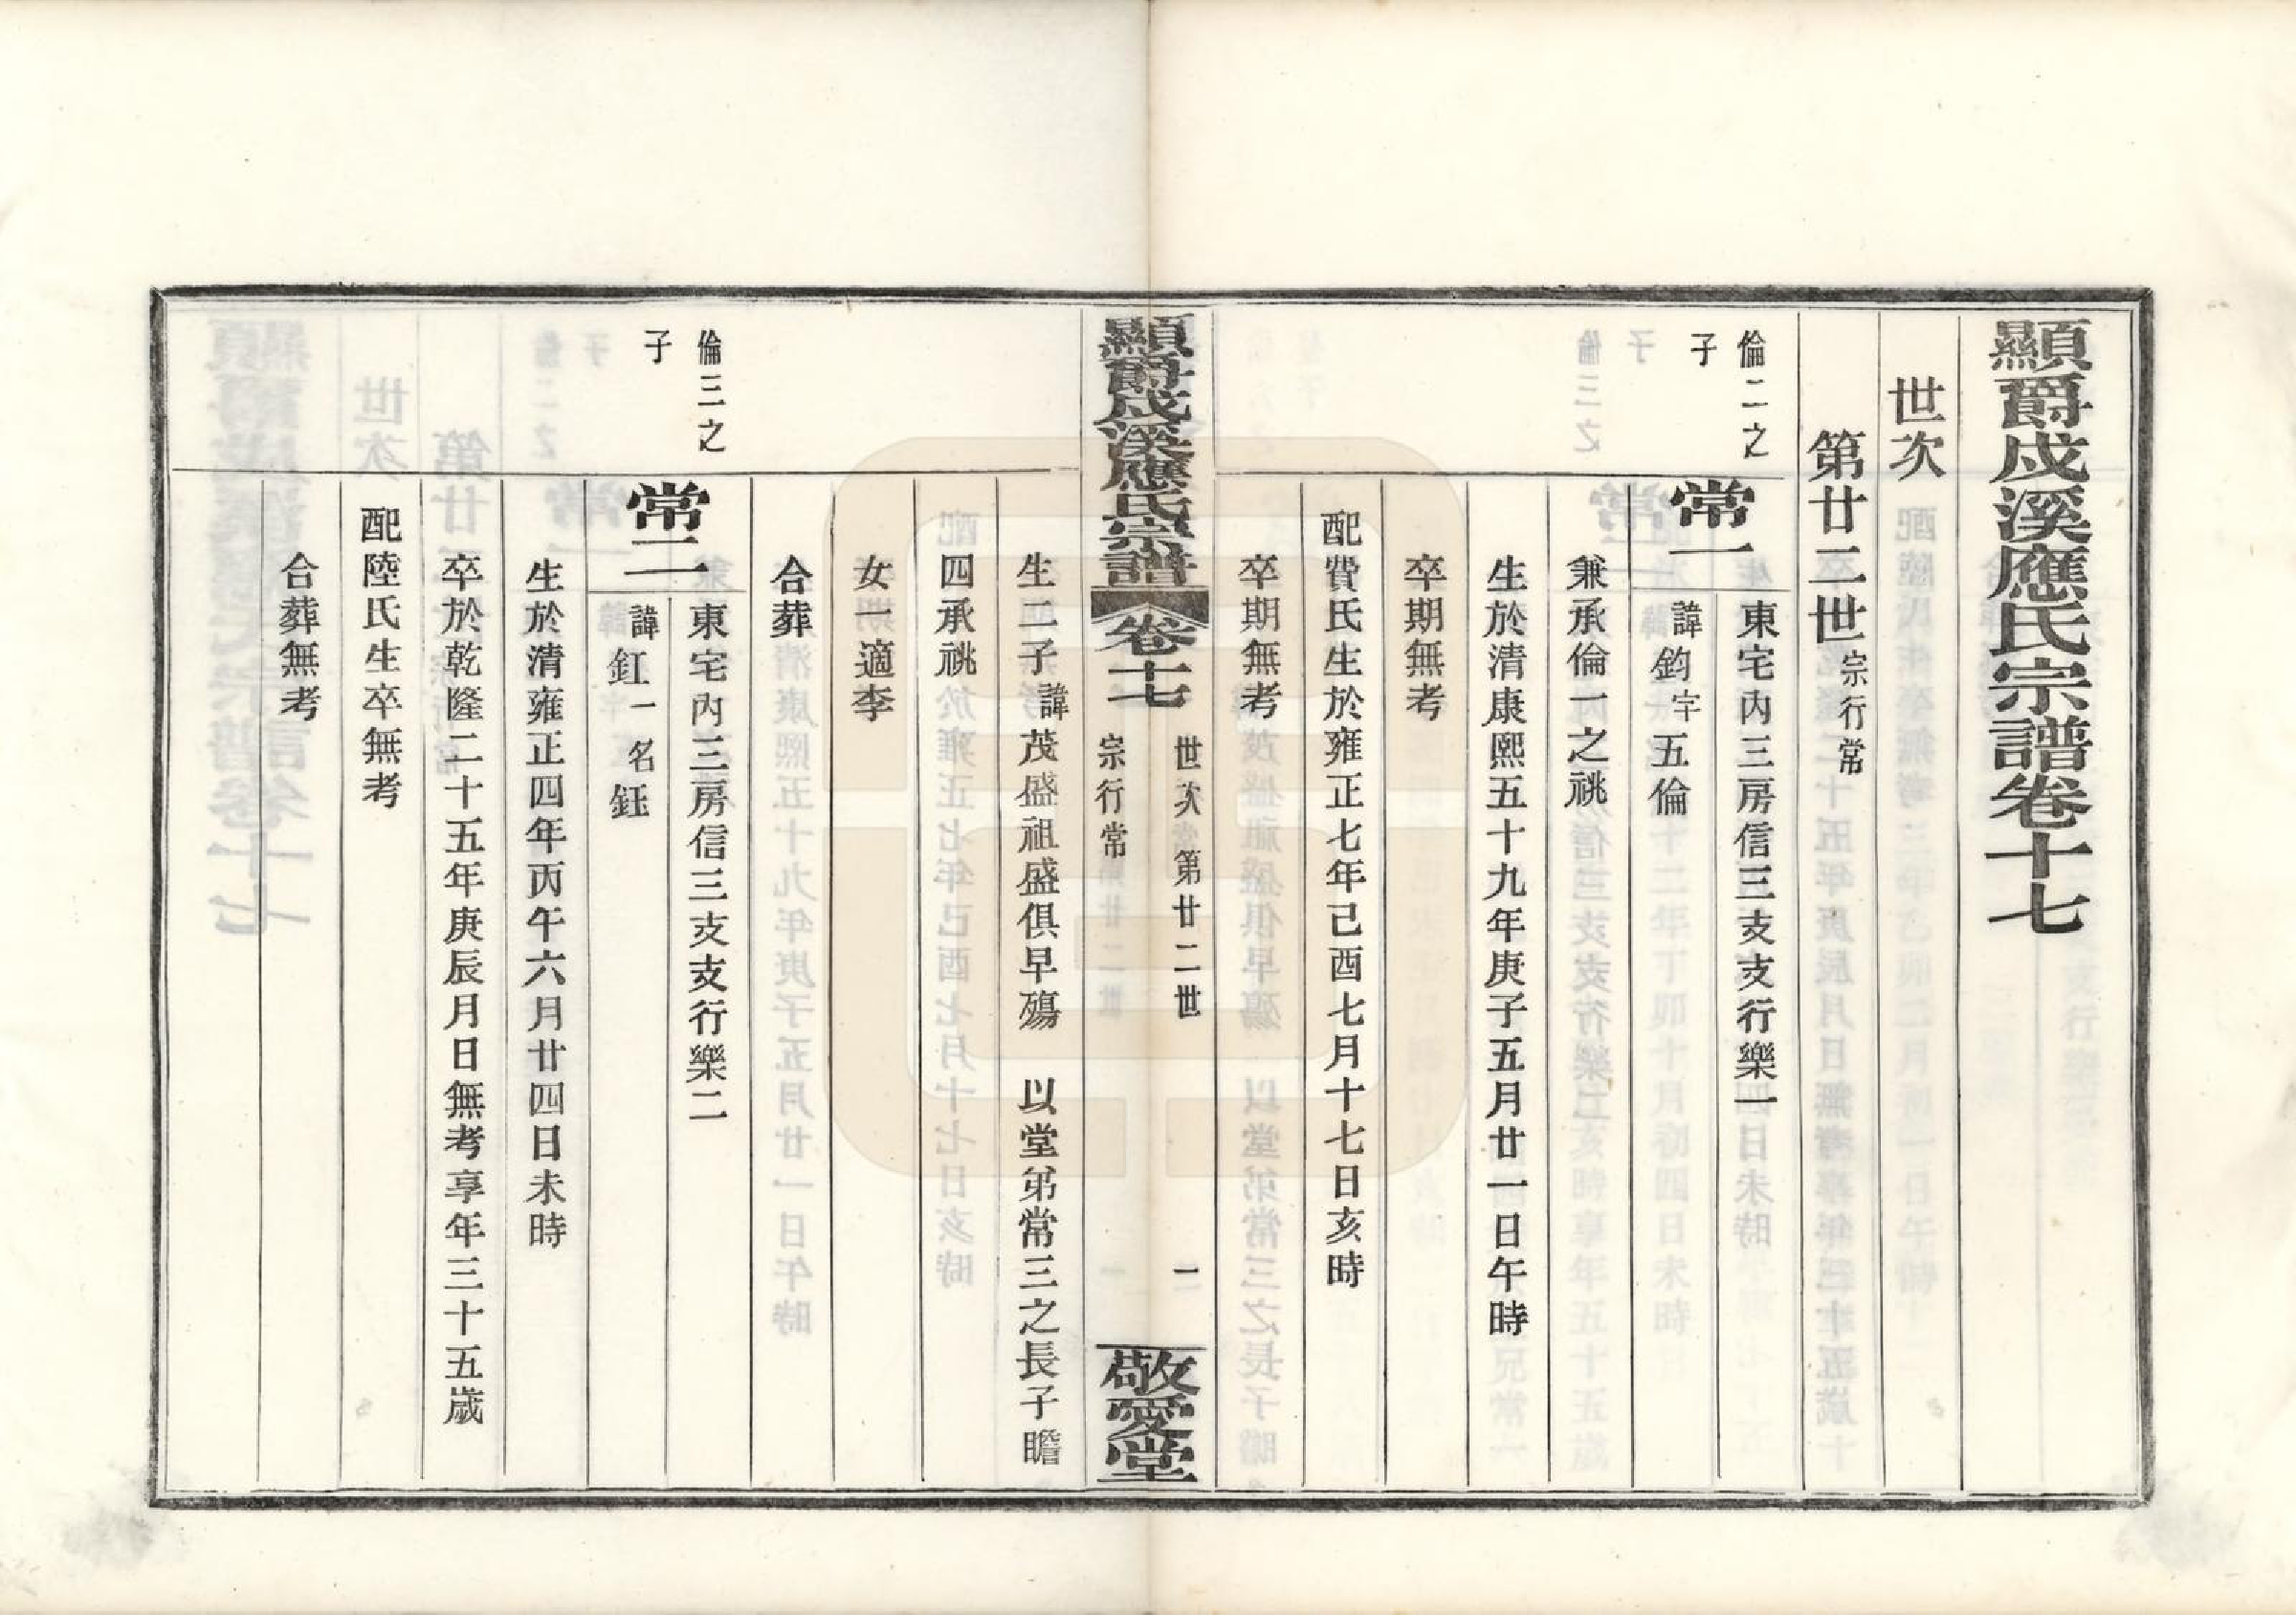 顯爵戍溪應氏宗譜卷十七
世次
第廿二世宗行常
倫二之
子
常一
東宅內三房信三支支行樂一
諱鈞字五倫
兼承倫一之祧
生於清康熙五十九年庚子五月廿一日午時
卒期無考
配費氏生於雍正七年己酉七月十七日亥時
卒期無考
顯爵戍溪應氏宗譜
卷十七
世次 第廿二世
宗行常
一
敬愛堂
生二子諱茂盛祖盛俱早殤 以堂弟常三之長子瞻
四承祧
女一適李
合葬
倫三之
子
常二
東宅內三房信三支支行樂二
諱釭一名鈺
生於清雍正四年丙午六月廿四日未時
卒於乾隆二十五年庚辰月日無考享年三十五歲
配陸氏生卒無考
合葬無考